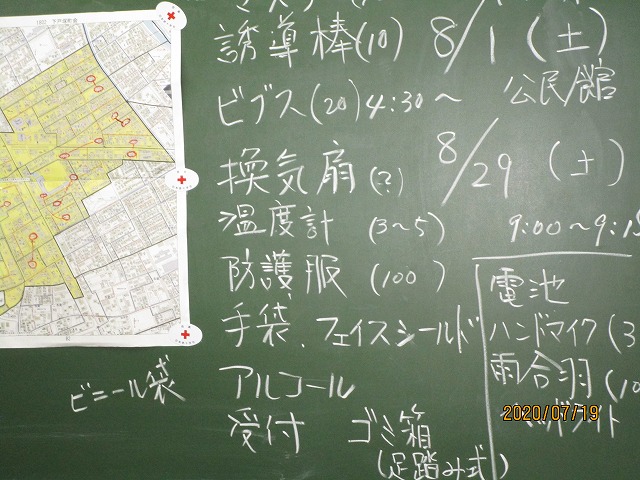 誘導棒(10) 8/1(土)
ビブス(20) 4:30～ 公民館
換気扇(?) 8/29(土)
温度計(3～5) 9:00～9:15
防護服(100)
手袋、フェイスシールド
アルコール
受付 ゴミ箱
(足踏み式)
ビニール袋
電池
ハンドマイク(3
雨合羽(10
2020/07/19